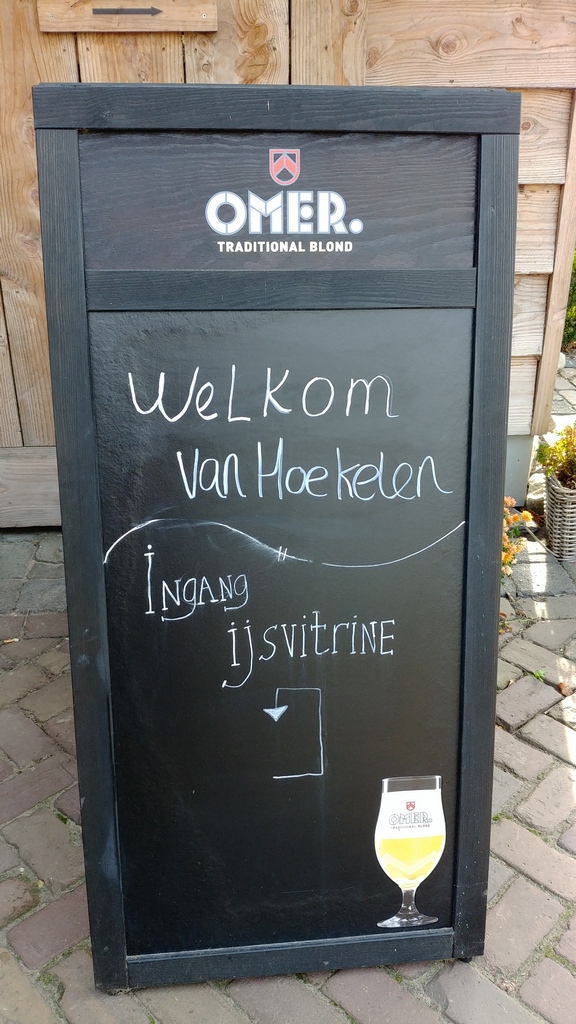 OMER.
TRADITIONAL BLOND
Welkom
van Hoekelen
Ingang
ijsvitrine
OMER.
TRADITIONAL BLOND